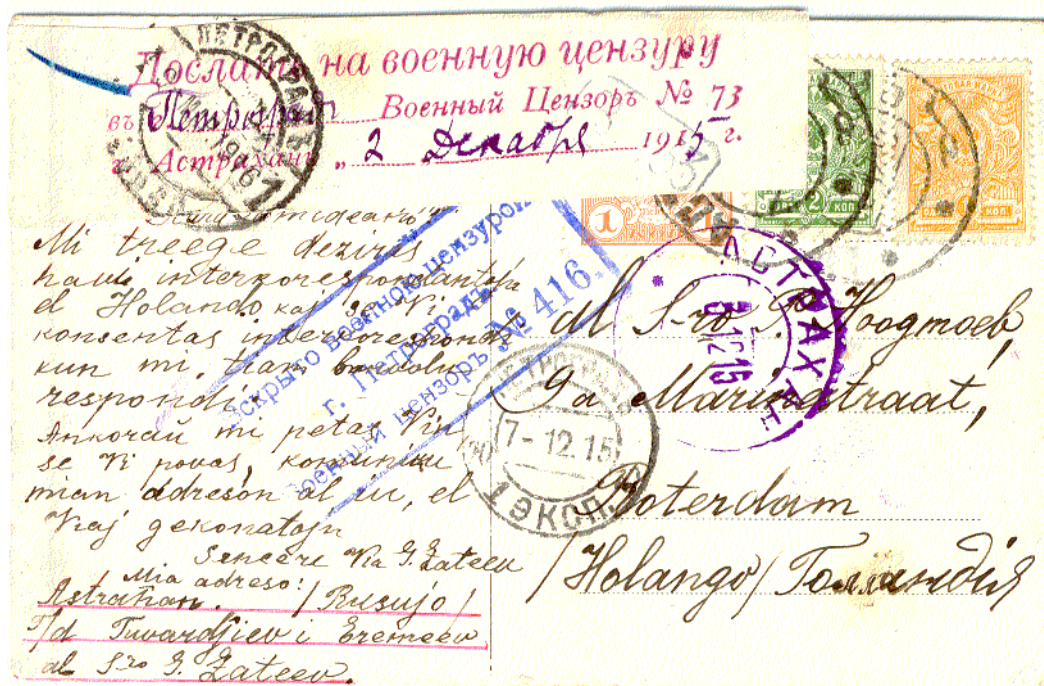 Дослать на военную цензуру
въ Петроградъ Военный Цензоръ № 73
г. Астрахань „ 2 Декабря 1915 г.
ПЕТРОГРАДЪ
1
АСТРАХАНЬ
6 12 15
ПЕТРОГРАДЪ
7-12.15
1 ЭКСП.
Вскрыто военною цензурой
г. Петроградъ
Военный цензоръ № 416.
1 1
2 КОП
1 КОП.
Samideano
Mi treege deziras
havi interkorespondantojn
el Holando kaj se Vi
konsentas interkorespondi
kun mi, tian bonvolu
respondi.
Ankoraŭ mi petas Vin
se Vi povas, komuniku
mian adreson al iu, el
Viaj gekonatojn
Sincere Via G. Zateev
Mia adreso:
Astraĥan. /Rusujo/
T/d Tuvardjiev i Eremeev
al S-ro G. Zateev.
Al S-ro P. Hoogmoed
9a Mariastraat,
Roterdam
/Holando/ Голландія